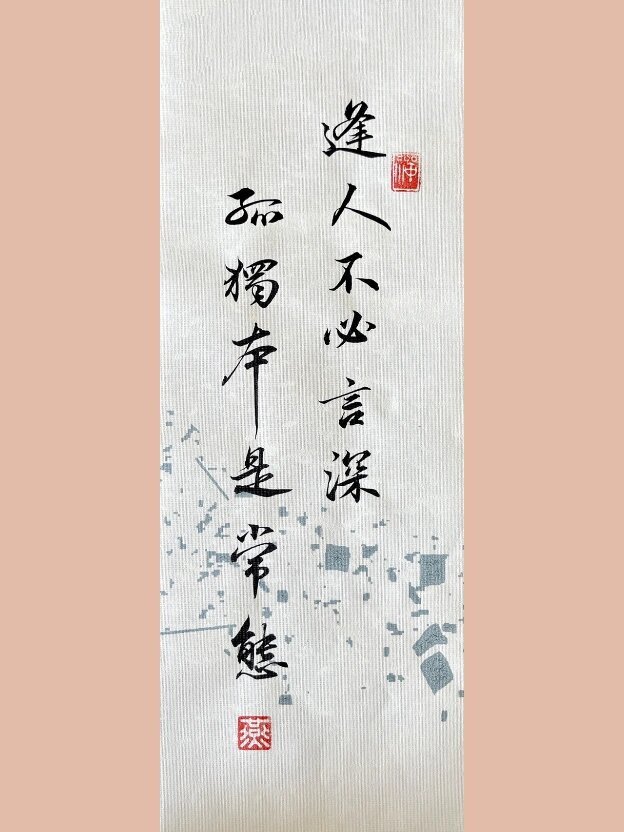 逢人不必言深
孤獨本是常態
燕